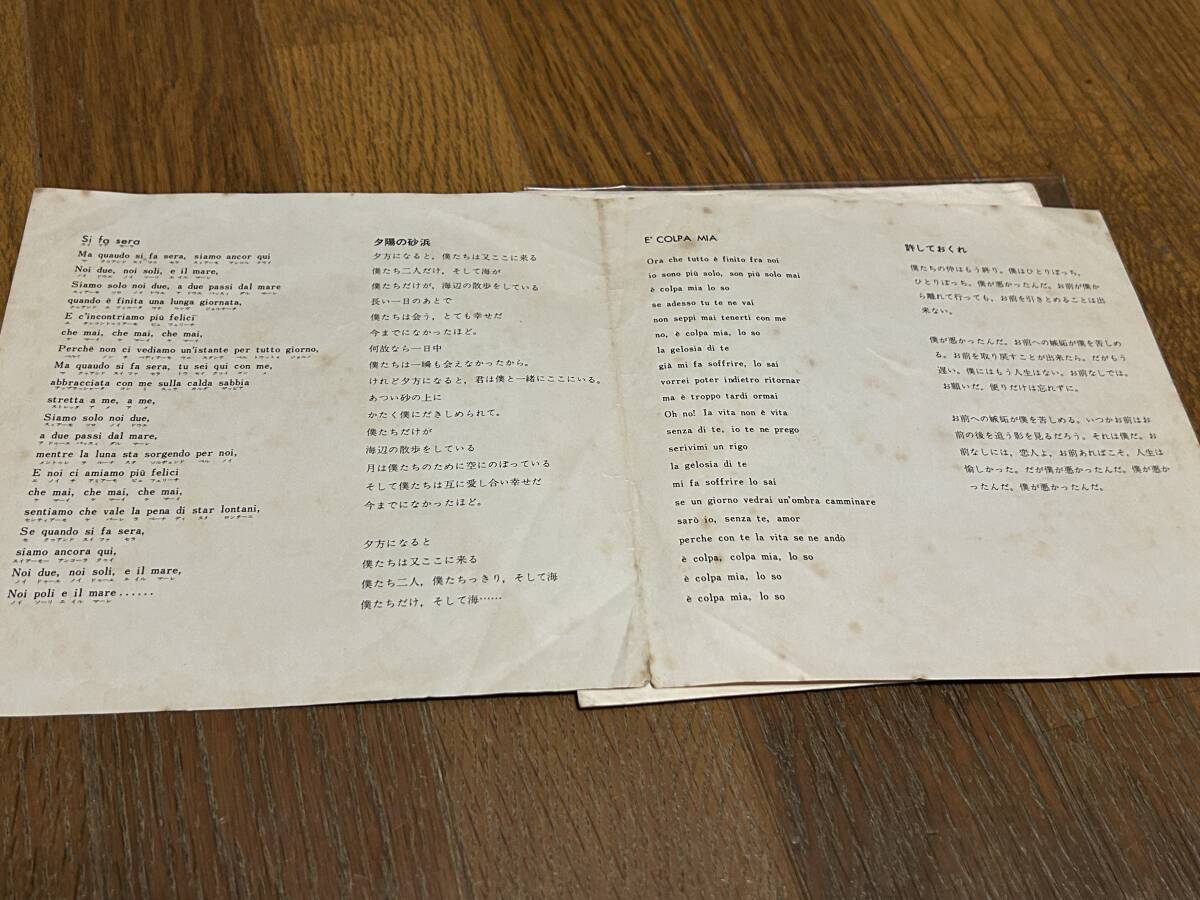 Si fa sera
Ma quaudo si fa sera, siamo ancor qui
Noi due, noi soli, e il mare,
Siamo solo noi due, a due passi dal mare
quando è finita una lunga giornata,
E c'incontriamo più felici
che mai, che mai, che mai,
Perchè non ci vediamo un'istante per tutto giorno,
Ma quaudo si fa sera, tu sei qui con me,
abbracciata con me sulla calda sabbia
stretta a me, a me,
Siamo solo noi due,
a due passi dal mare,
mentre la luna sta sorgendo per noi,
E noi ci amiamo più felici
che mai, che mai, che mai,
sentiamo che vale la pena di star lontani,
Se quando si fa sera,
siamo ancora qui,
Noi due, noi soli, e il mare,
Noi poli e il mare......
夕陽の砂浜
夕方になると，僕たちは又ここに来る
僕たち二人だけ，そして海が
僕たちだけが，海辺の散歩をしている
長い一日のあとで
僕たちは会う，とても幸せだ
今までになかったほど。
何故なら一日中
僕たちは一瞬も会えなかったから。
けれど夕方になると，君は僕と一緒にここにいる。
あつい砂の上に
かたく僕にだきしめられて。
僕たちだけが
海辺の散歩をしている
月は僕たちのために空にのぼっている
そして僕たちは互に愛し合い幸せだ
今までになかったほど。
夕方になると
僕たちは又ここに来る
僕たち二人，僕たちっきり，そして海
僕たちだけ，そして海……
E' COLPA MIA
Ora che tutto è finito fra noi
io sono più solo, son più solo mai
è colpa mia lo so
se adesso tu te ne vai
non seppi mai tenerti con me
no, è colpa mia, lo so
la gelosia di te
già mi fa soffrire, lo sai
vorrei poter indietro ritornar
ma è troppo tardi ormai
Oh no! la vita non è vita
senza di te, io te ne prego
serivimi un rigo
la gelosia di te
mi fa soffrire lo sai
se un giorno vedrai un'ombra camminare
sarò io, senza te, amor
perche con te la vita se ne andò
è colpa, colpa mia, lo so
è colpa mia, lo so
è colpa mia, lo so
許しておくれ
僕たちの仲はもう終り。僕はひとりぼっち，
ひとりぼっち。僕が悪かったんだ。お前が僕か
ら離れて行っても，お前を引きとめることは出
来ない。
僕が悪かったんだ。お前への嫉妬が僕を苦しめ
る。お前を取り戻すことが出来たら。だがもう
遅い。僕にはもう人生はない。お前なしでは。
お願いだ。便りだけは忘れずに。
お前への嫉妬が僕を苦しめる。いつかお前はお
前の後を追う影を見るだろう。それは僕だ。お
前なしには，恋人よ，お前あればこそ，人生は
愉しかった。だが僕が悪かったんだ。僕が悪か
ったんだ。僕が悪かったんだ。